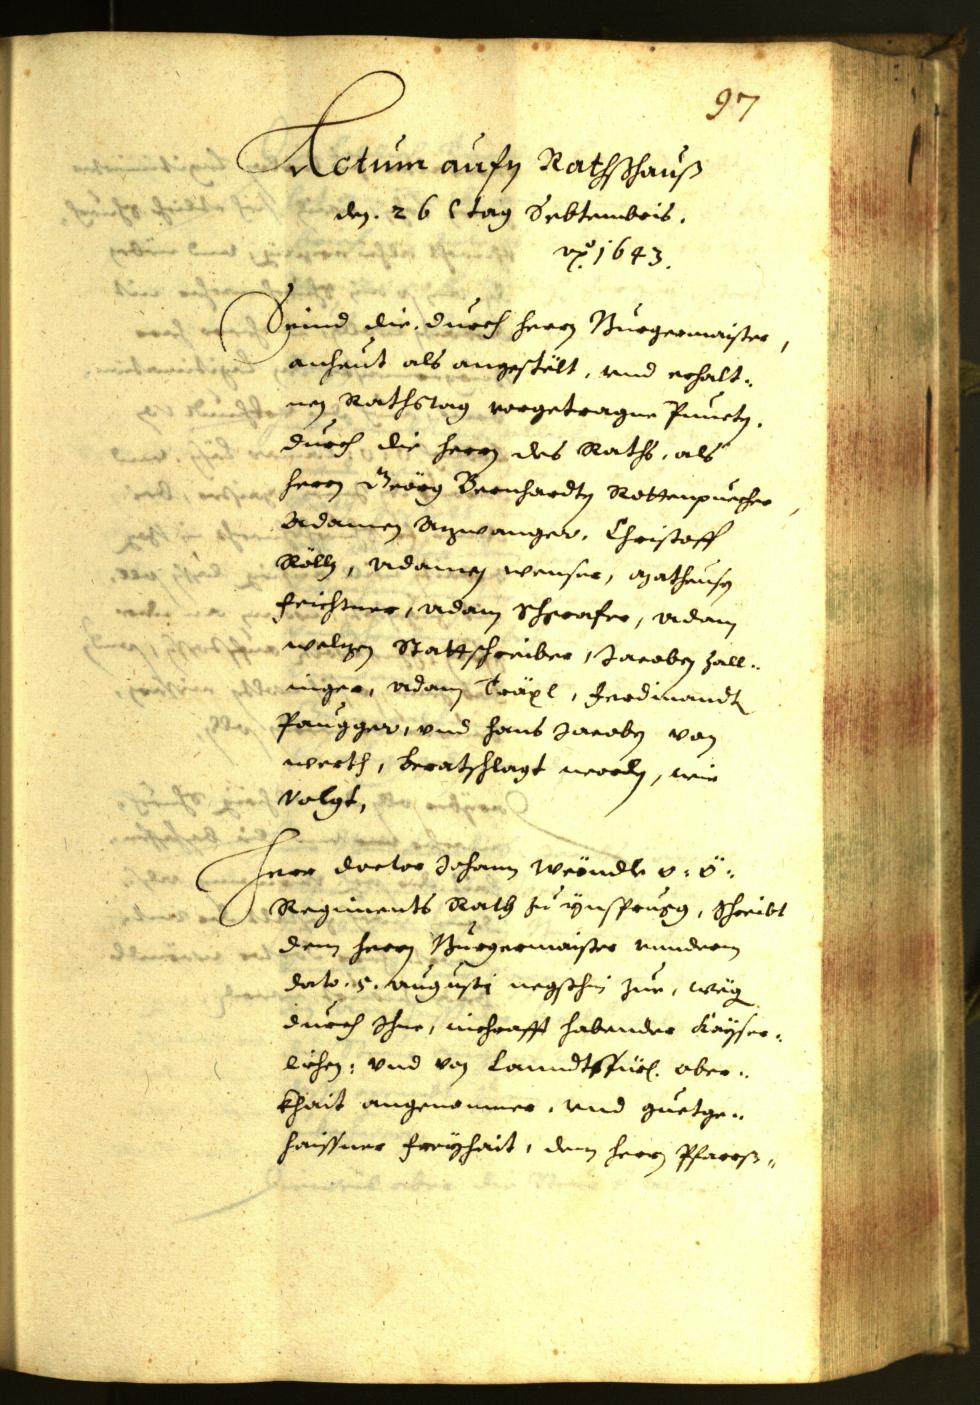 97
Actum aufn Rathßhauß
den. 26 (tag Sebtembris.
aõ. 1643.
Seind die, durch herrn Burgermaister,
anheut als angestelt, vnd erhalt-
nen Rathstag vorgetragne Puncten,
durch die herrn des Raths, als
herrn Georg Bernhardten Rottenpuecher,
Adamen Azwanger, Christoff
Röllen, Adamen wenser, Matheusen
feichtner, Adam Schgrafer, Adam
welzen Stattschreiber, Jacoben Zall-
inger, Adam Träxl, ferdinandt
Paugger, vnd hans Jacoben von
werth, beratschlagt worden, wie
volgt,
Herr doctor Johann Weründle o: ö:
Regiments Rath zu Ynsprugg, schreibt
dem herrn Burgermaister vnnderm
dato. 5. augusti negsthin zue, weg
durch Ihne, incrafft habender Kayser-
lichen: vnd von Lanndtsfürl. ober-
khait angenomner, vnd guetge-
haissner freyhait, dem herrn Pfarrß-